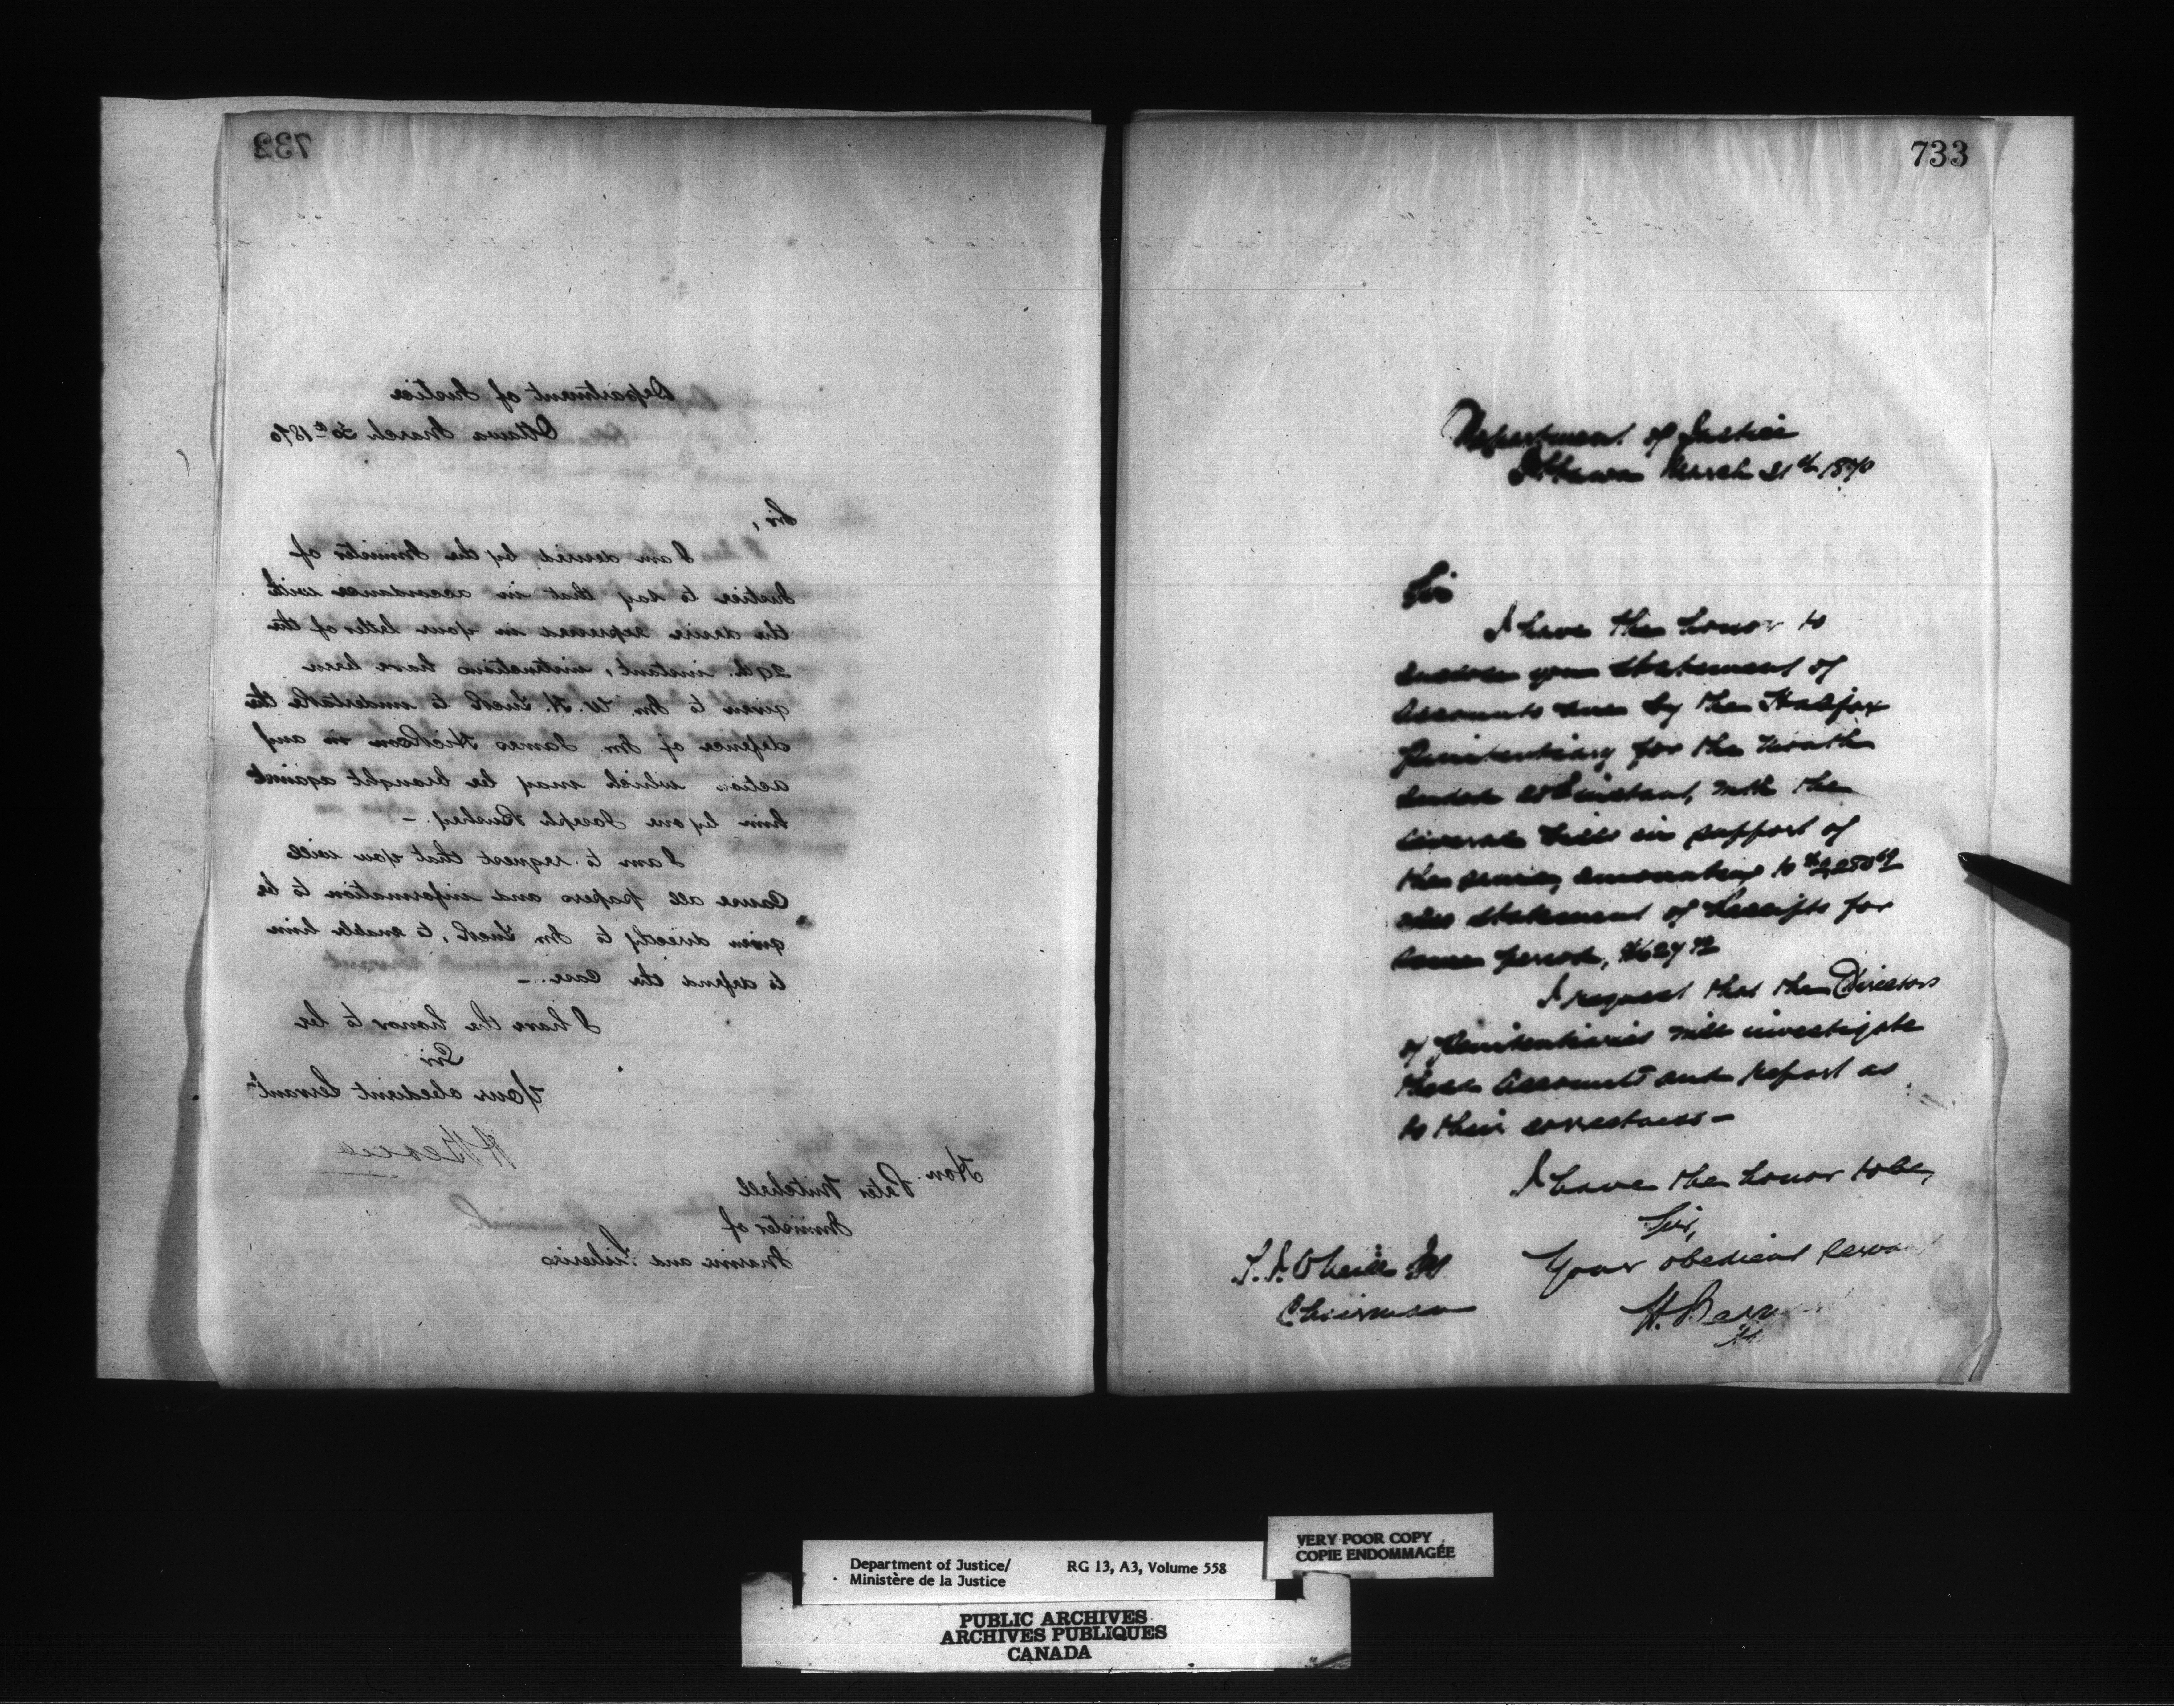 732
Department of Justice
Ottawa March 30th 1870
Sir,
I am desired by the Minister of
Justice to say that in accordance with
the desire expressed in your letter of the
29th. instant, instructions have been
given to Mr. W. H. Tuck to undertake the
defence of Mr. James Hickson in any
action which may be brought against
him by one Joseph
I am to request that you will
cause all papers and information to be
given directly to Mr. Tuck, to enable him
to defend the case. —
I have the honor to be
Sir
Your obedient Servant
H Bernard
Hon. Peter Mitchell
Minister of
Marine and Fisheries
733
Department of Justice
Ottawa March 31st 1870
Sir
I have the honor to
enclose you statement of
Accounts due by the Halifax
Penitentiary for the month
ended instant, with the
several bills in support of
the same, amounting to
also statement of Receipts for
same period,
I request that the Directors
of Penitentiaries will investigate
these Accounts and report as
to their correctness —
I have the honor to be,
Sir,
Your obedient Servan
H. Bern
Chairman
Department of Justice/
Ministère de la Justice
RG 13, A3, Volume 558
VERY POOR COPY
COPIE ENDOMMAGÉE
PUBLIC ARCHIVES
ARCHIVES PUBLIQUES
CANADA